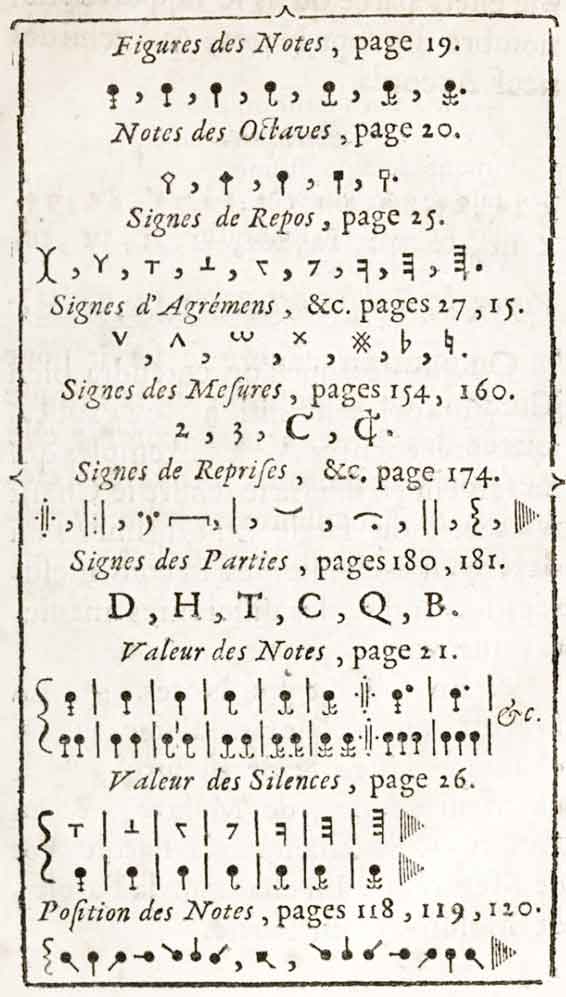 Figures des Notes, page 19.
Notes des Octaves, page 20.
Signes de Repos, page 25.
Signes d'Agrémens, &c. pages 27, 15.
Signes des Meſures, pages 154, 160.
2, 3, C, ₵.
Signes de Repriſes, &c. page 174.
Signes des Parties, pages 180, 181.
D, H, T, C, Q, B.
Valeur des Notes, page 21.
&c.
Valeur des Silences, page 26.
Poſition des Notes, pages 118, 119, 120.